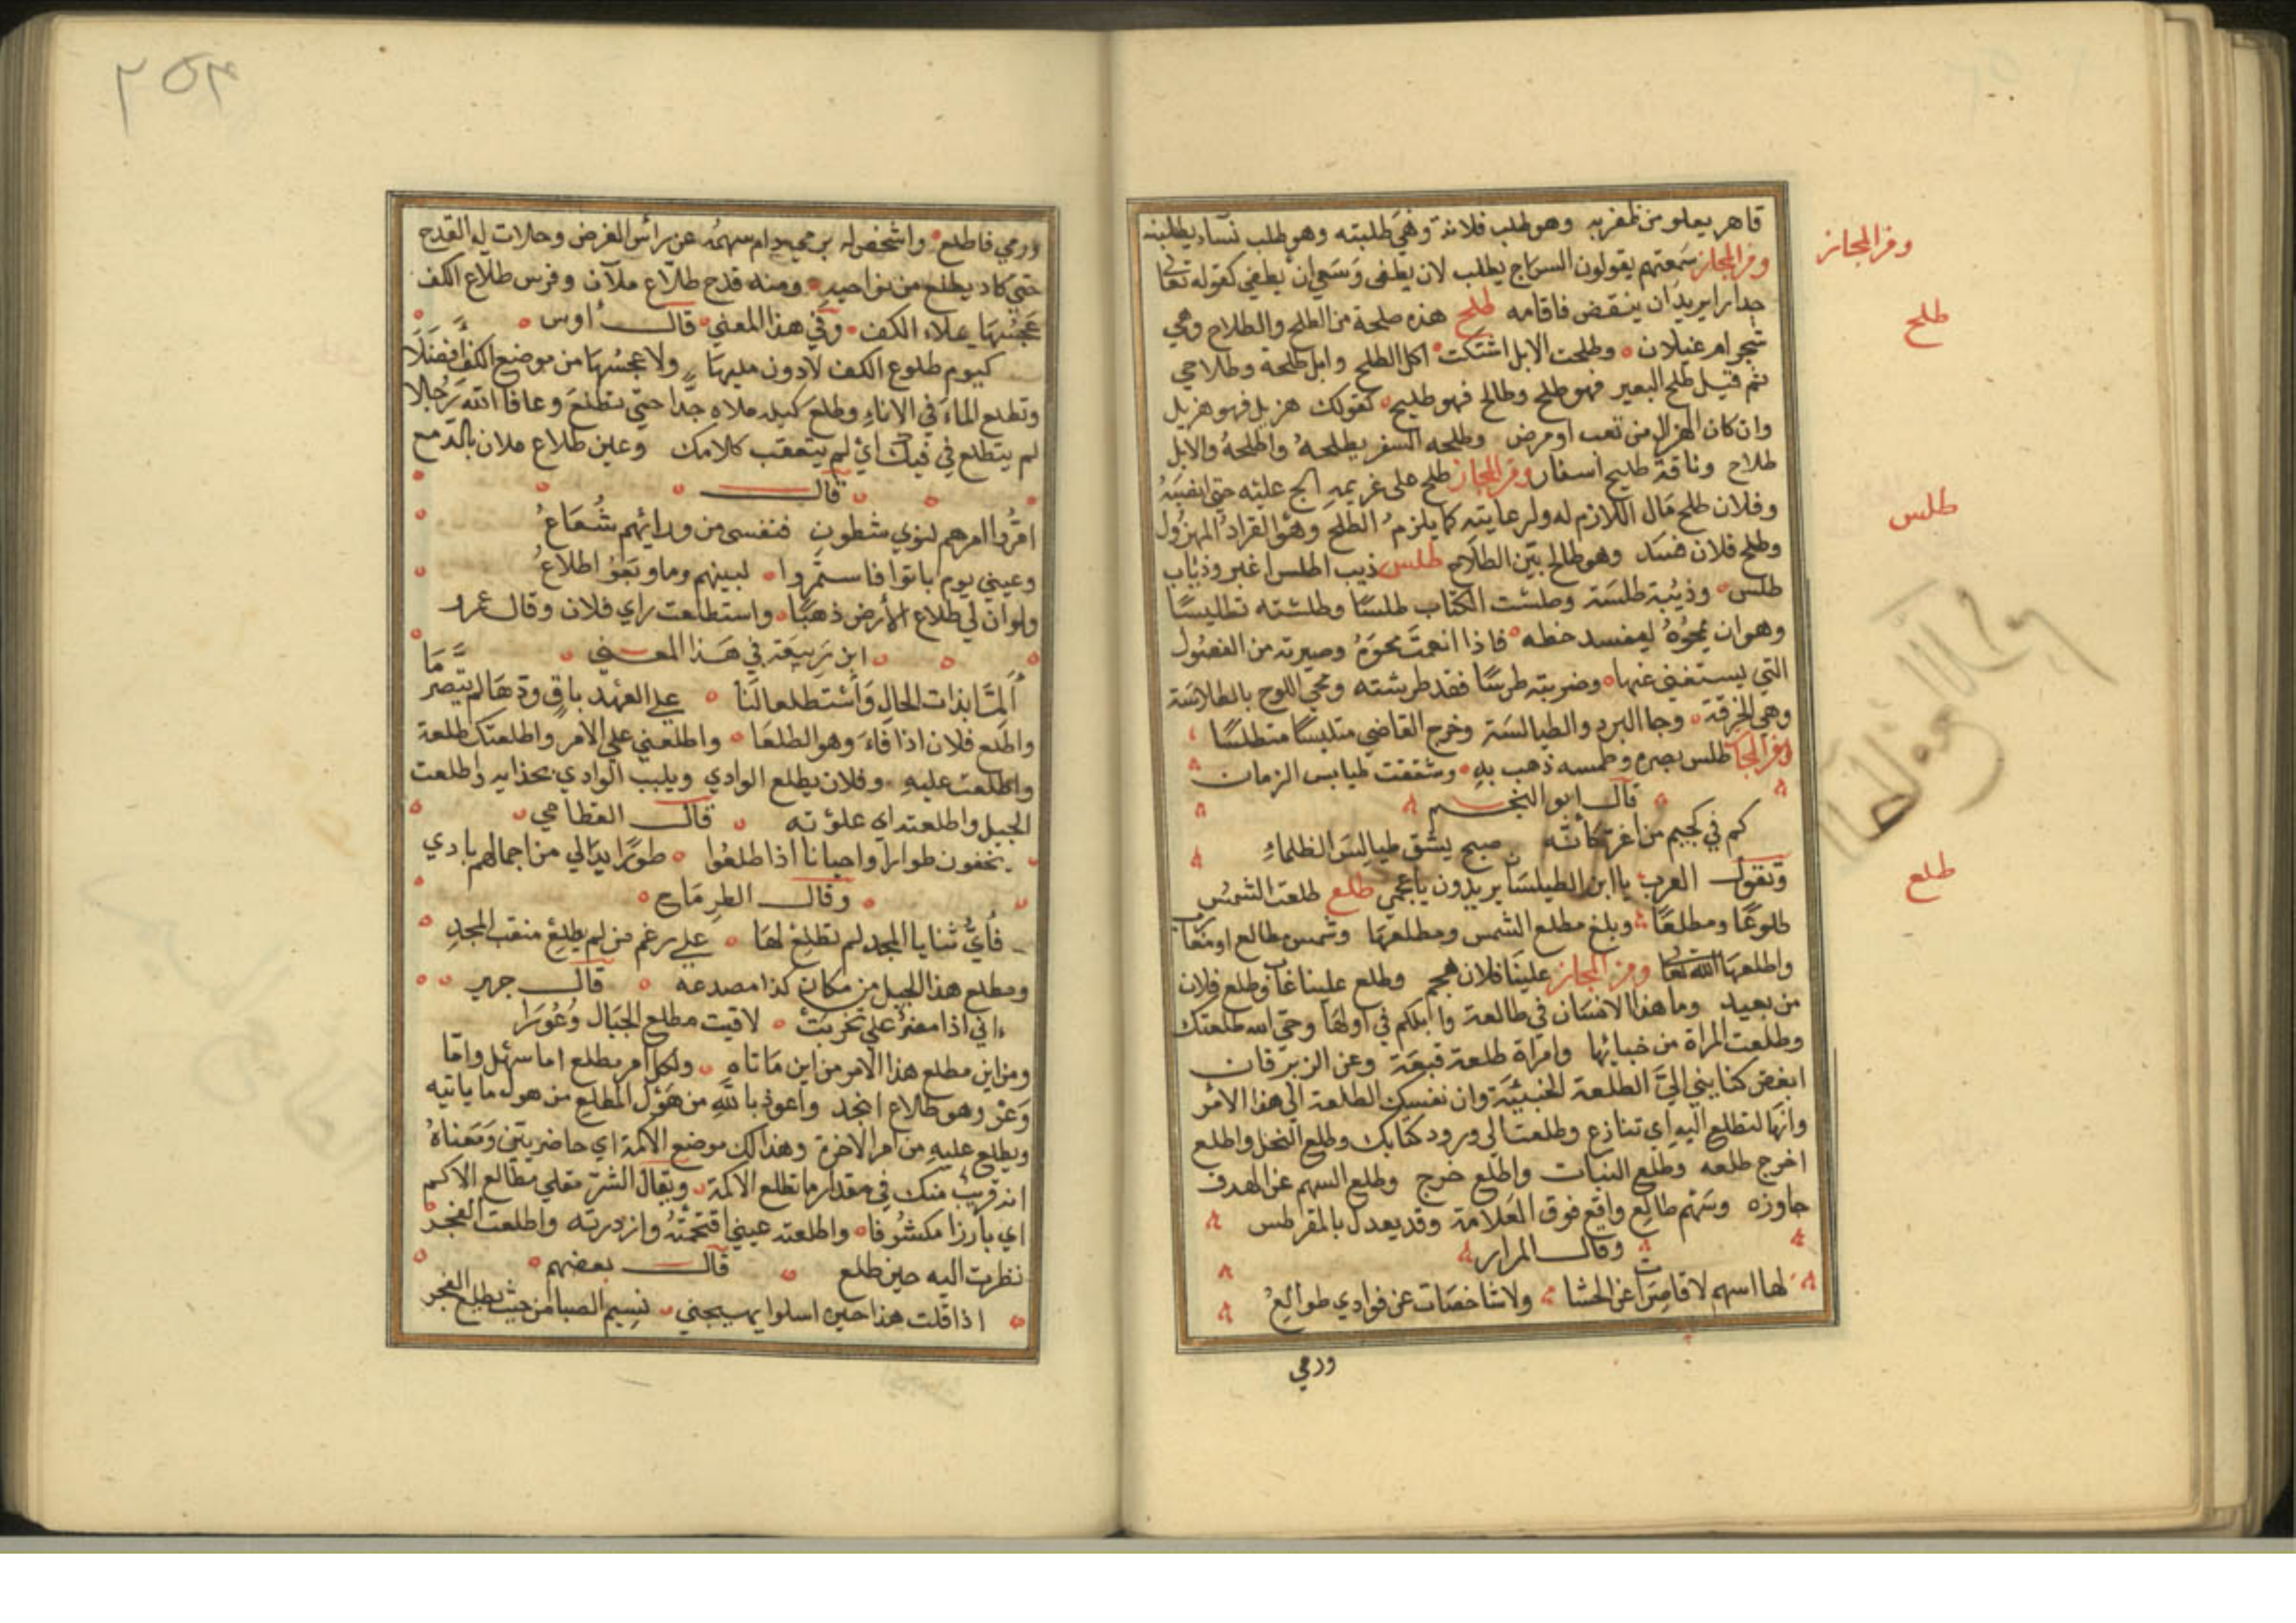 قاهر يعلو من ظفر به وهو طلب فلانة وهي طلبته وهو طلب نساء يطلبنه
ومن المجاز سمعتهم يقولون السراج يطلب لان يطفى وسعي ان يطفي كقوله تعا
جدارا يريد ان ينقض فاقامه طلح هذه طلحة من الطلح والطلاح وهي
شجر ام غيلان وطلحت الابل اشتكت اكل الطلح وابل طلحة وطلاحي
ثم قيل طلح البعير فهو طلح وطالح فهو طليح كقولك هزيل فهو هزيل
وان كان الهزال من تعب او مرض وطلحه السفر يطلحه واطلحه والابل
طلاح وناقة طليح اسفار ومن المجاز طلح على غريمه الح عليه حتى انضبه
وفلان طلح مال اللازم له ولرعايته كما يلزم الطلح وهو القراد المهزول
وطلح فلان فسد وهو طالح بين الطلاح طلس ذيب اطلس اغبر وذئاب
طلس وذئبة طلسة وطلست الكتاب طلسا وطلسته تطليسا
وهو ان تمحوه ليفسد خطه فاذا انعمت محوه وصيرته من الفضول
التي يستغنى عنها وضربته طرسا فقد طرسته ومحي اللوح بالطلاسة
وهي الخرقة وجا البرد والطيالسة وخرج القاضي متلبسا متطلسا
ومن المجا طلس بصره وطمسه ذهب به وشققت طيابس الزمان
قال ابو النجم
كم في لجيم من اغر كأنه صبح يشق طيالس الظلماء
وتقول العرب يا ابن الطيلسا يريدون يا عجمي طلع طلعت الشمس
طلوعا ومطلعا وبلغ مطلع الشمس ومطلعها وشمس مطالع او
واطلعها الله تعا ومن المجاز علينا فلان هجم وطلع علينا غاب وطلع فلان
من بعيد وما هذا الانسان في طالعة وابلكم في اولها وحتى الله طلعتك
وطلعت المراة من خبائها وامراة طلعة قبعة وعن الزبرقان
ابغض كنايني الي الطلعة الخبيئة وان نفسك الطلعة الى هذا الامر
وانها لتطلع اليه اي تنازع وطلعت الى ورود كتابك وطلع النخل واطلع
اخرج طلعه وطلع النبات واطلع خرج وطلع السهم عن الهدف
جاوزه وسهم طالع واقع فوق العلامة وقد يعدل بالمقرطس
وقال المرار
لها اسهم لا قاصرا عن الحشا ولا شاخصات عن فوادي طوالع
ورمي
ومن المجاز
طلح
طلس
طلع
٢٥٣
ورمي فاطلع واشخص له برميه دام سهمه عن راس الغرض وحلات له القدح
حتى كاد يطلع من نواحيه ومنه قدح طلاع ملآن وقوس طلاع الكف
عجسها يملاء الكف وفي هذا المعنى قال اوس
كيوم طلوع الكف لا دون مليها ولا عجسها من موضع الكف افضلا
وتطلع الماء في الاناء وطلع كيله ملاه جدا حتى يتطلع وعافا الله رجلا
لم يتطلع في فيك اي لم يتعقب كلامك وعين طلاع ملان بالدمع
قال
امروا امرهم لنوي شطون فنفسى من ورائهم شعاع
وعيني يوم بانوا فاستمروا لبينهم وما
ولو ان لي طلاع الارض ذهبا واستطلعت راي فلان وقال عمر
ابن ربيعة في هذا المعنى
ألما بذات الخال واستطلعا لنا على العهد باق ودها ام تصرما
واطلع فلان اذا قاء وهو الطلعا واطلعني على الامر واطلعتك طلعة
واطلعت عليه وفلان يطلع الوادي ويلبب الوادي بحذايه واطلعت
الجبل واطلعته اي علوته قال القطامي
يخفون طوارا واحيانا اذا طلعوا طورا بدا لي من اجمالهم بادي
وقال الطرماح
فأي ثنايا المجد لم نطلع لها على رغم من لم يطلع منقب المجد
ومطلع هذا الجبل من مكان كذا مصدعه قال جرير
اني اذا مضر علي تحربت لاقيت مطلع الجبال وعورا
ومن اين مطلع هذا الامر من اين ماتاه ولكل امر مطلع اما سهل واما
وعر وهو طلاع انجد واعوذ بالله من هول المطلع من هول ما ياتيه
ويطلع عليه من امر الاخرة وهذا لك موضع الاكمة اي حاضر بين ومعناه
انه قريب منك في مقدار ما تطلع الاكمة ويقال الشر مقلي مطالع الاكم
اي بارزا مكشوفا واطلعته عيني اقتحمته وازدرته واطلعت الفجر
نظرت اليه حين طلع قال بعضهم
اذا قلت هذا حين اسلوا يهيجني نسيم الصبا من حيث يطلع الفجر